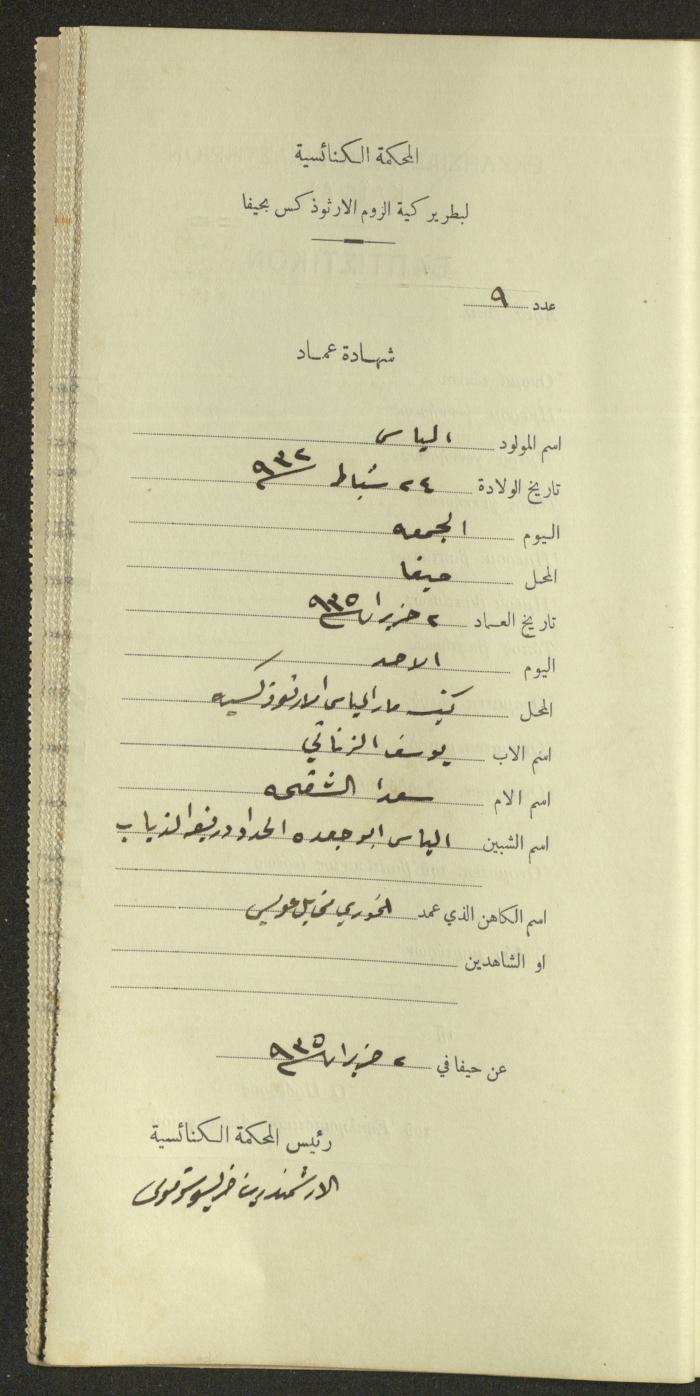 المحكمة الكنائسية
لبطريركية الروم الارثوذكس بحيفا
عدد ٩
شهادة عماد
اسم المولود الياس
تاريخ الولادة ٢٤ شباط ٩٣٢
اليوم الجمعه
المحل حيفا
تاريخ العماد ٢ حزيران ٩٣٥
اليوم الاحد
المحل كنيسة مار الياس الارثوذكسيه
اسم الاب يوسف الزناتي
اسم الام سعدا
اسم الشبين الياس ابو جعده الحداد
اسم الكاهن الذي عمد الخوري عويس
او الشاهدين
عن حيفا في ٢ حزيران ٩٣٥
رئيس المحكمة الكنائسية
الارشمندريت